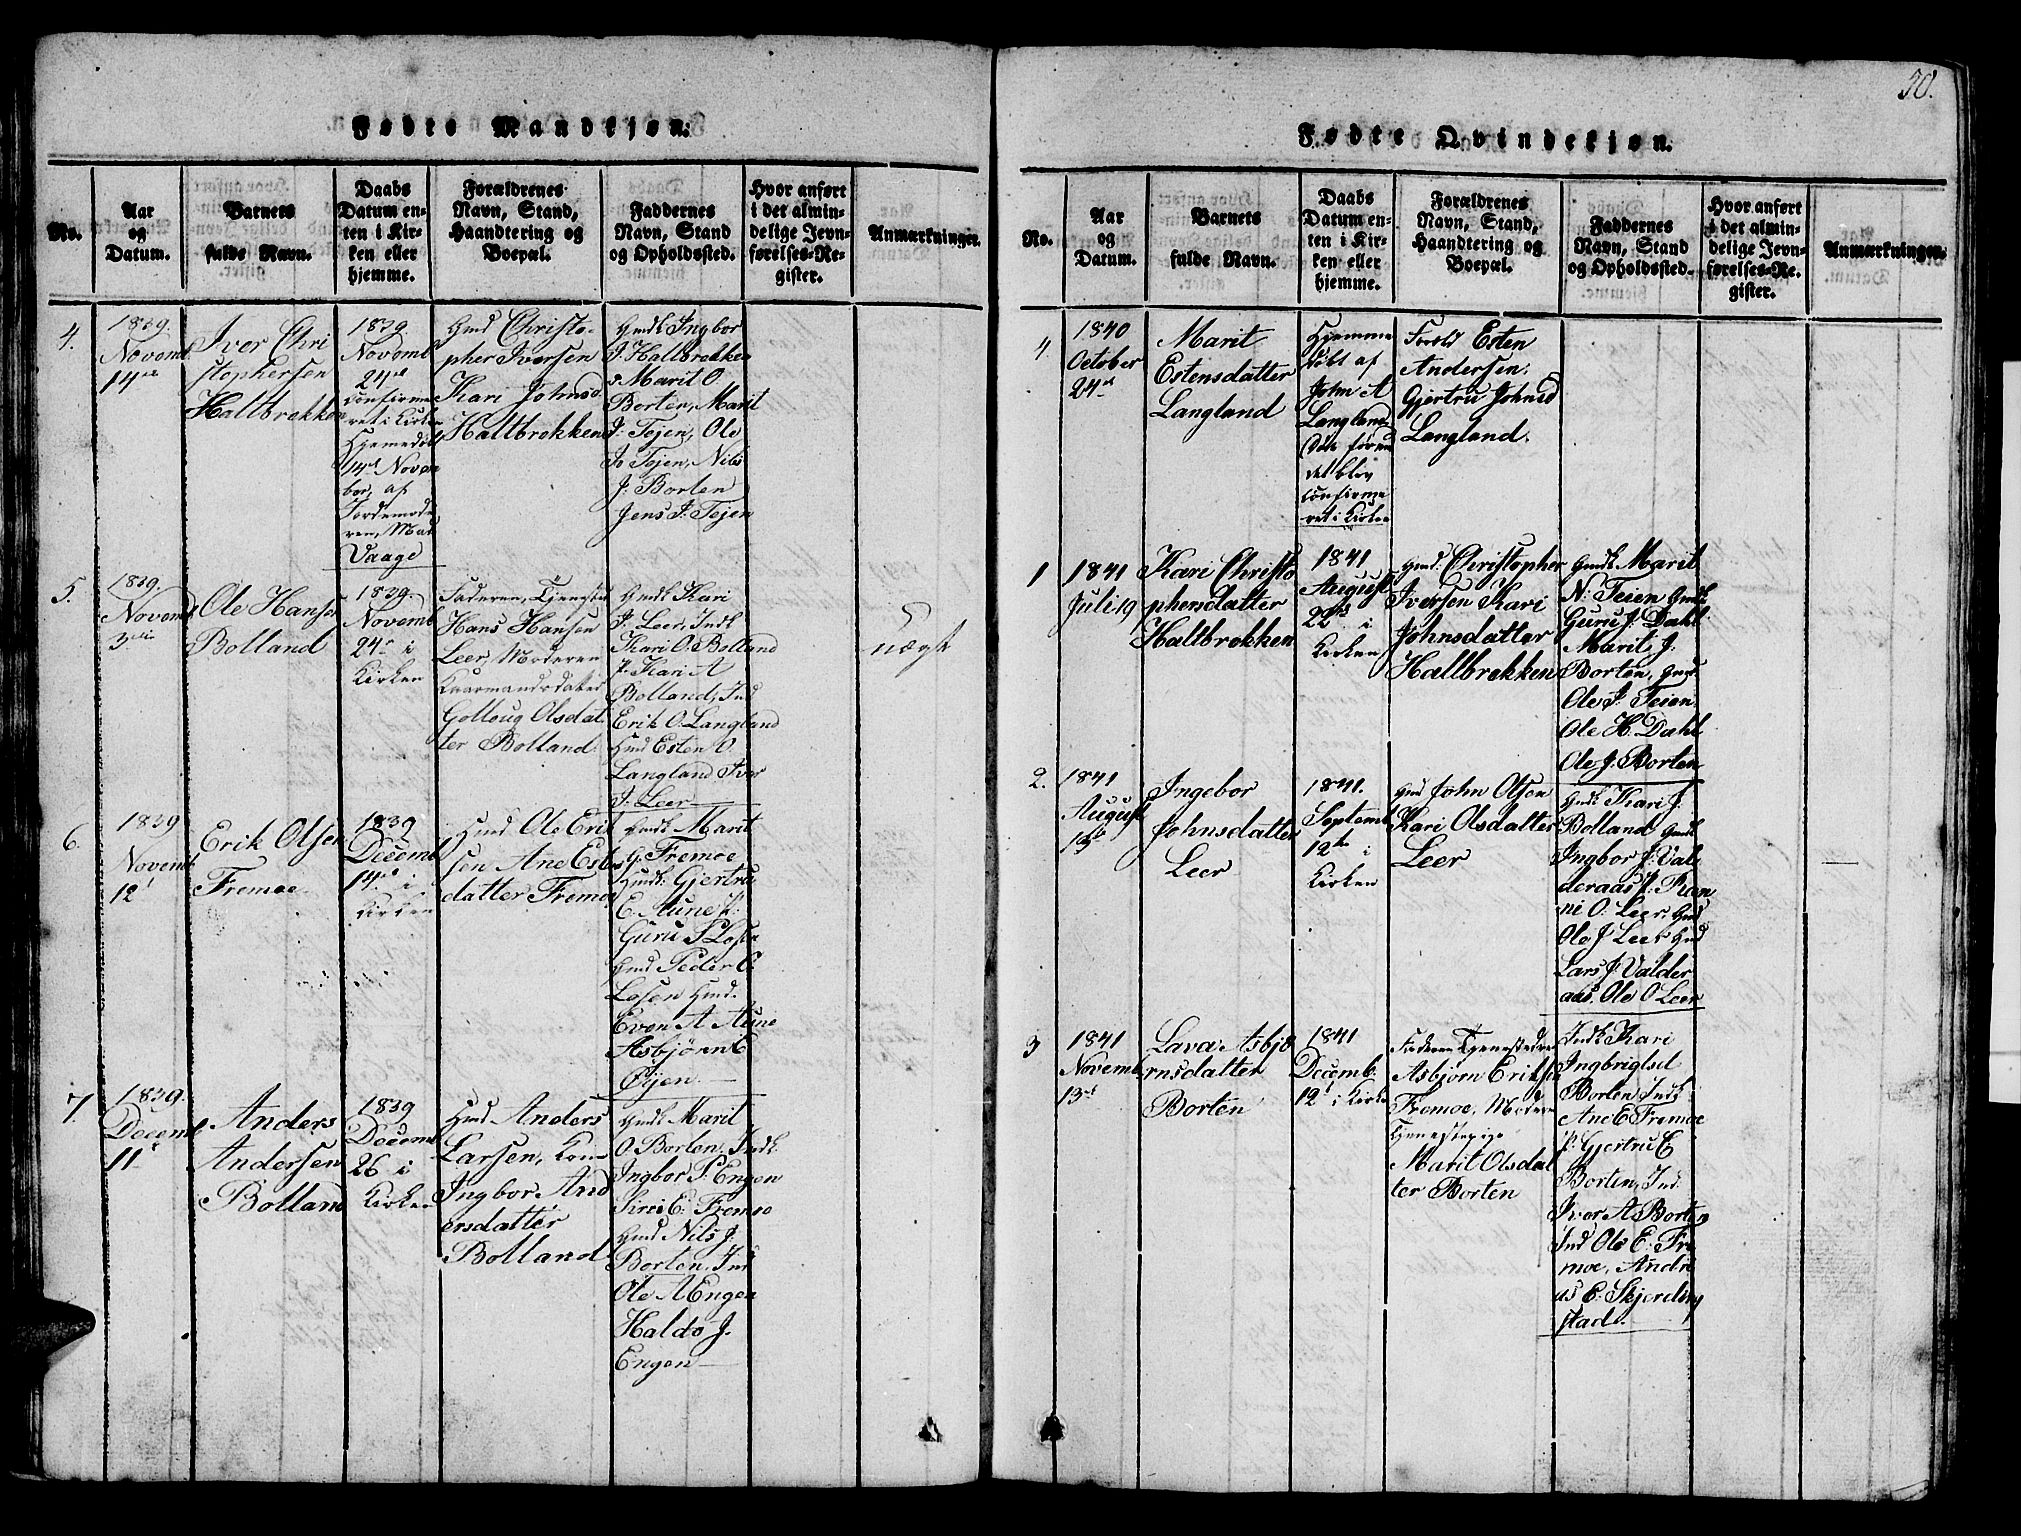 Fødte Mandkjøn.
No.
Aar
og
Datum.
Barnets
fulde Navn.
Daabs
Datum en-
ten i Kir-
ken eller
hjemme.
Forældrenes
Navn, Stand,
Haandtering og
Boepæl.
Faddernes
Navn, Stand
og Opholdssted.
Hvor anført
i det almin-
delige Jevn-
førelses-Re-
gister.
Anmærkninger.
4.
1839.
Novemb
14de
Iver Chri
stophersen
Haltbrekken
1839.
Novemb
24de
confirme
ret i Kirken
Hjemedøbt
14de Novem
ber, af
Jordemode
ren, Mar
Vaage
Gmd Christo-
pher Iversen
Kari Johnsd
Haltbrekken
Gmdk Ingbor
J. Haltbrekken
Marit O
Borten, Marit
J. Tejen, Ole
Jo Tejen, Nils
J. Borten
Jens J. Tejen
5.
1839.
Novemb
3die
Ole Hansen
Bolland
1839.
Novemb
24de i
Kirken
Faderen, Tjenestd
Hans Hansen
Leer, Moderen
Kaarmandsdatter
Golloug Olsdat
ter Bolland.
Gmdk Kari
J. Leer, Indk
Kari O. Bolland
P. Kari A
Bolland, Ind
Erik O. Langland
Gmd Esten O.
Langland Iver
J. Leer
nægt
6.
1839
Novemb
12
Erik Olsen
Fremoe
1839
Decemb
14de i
Kirken
Gmd Ole Erik
sen Ane Esb
datter Fremo
Gmdk Marit
G. Fremoe
Gmdk. Gjertru
E. Aune P.
Guru P Losen
Gmd Peder O.
Losen Gmd.
Even A Aune
Asbjørn E
Øyen.
7.
1839.
Decemb
11
Anders
Andersen
Bolland
1839
Decemb
26 i
Kirken
Gmd Anders
Larsen, Kone
Ingbor And
ersdatter
Bolland
Gmdk Marit
O. Borten, Indk.
Ingbor P. Engen
Siri E. Fremo
Gmd Nils J.
Borten, Ind
Ole A Engen
Haldo J.
Engen
Fødte Qvindekjøn.
50.
No.
Aar
og
Datum.
Barnets
fulde Navn.
Daabs
Datum en-
ten i Kir-
ken eller
hjemme.
Forældrenes
Navn, Stand,
Haandtering og
Boepæl.
Faddernes
Navn, Stand
og Opholdssted.
Hvor anført
i det almin-
delige Jevn-
førelses-Re-
gister.
Anmærkninger.
4
1840
October
24de
Marit
Estensdatter
Langland
Hjemme
døbt af
John A
Langland
Døde førend
det blev
confirme
ret i Kirken
Esten
Andersen,
Gjertru Johnsd
Langland.
1
1841
Juli 19
Kari Christo
phersdatter
Haltbrekken
1841
August
22de i
Kirken
Gmd. Christopher
Iversen Kari
Johnsdatter
Haltbrekken
Gmdk Marit
N. Teien Gmdk
Guru J. Dahl
Marit J.
Borten, Gmd.
Ole J. Teien
Ole H. Dahl
Ole J. Borten
2.
1841
August
15de
Ingebor
Johnsdatter
Leer
1841.
Septemb
12te i
Kirken
Gmd John Olsen
Kari Olsdatter
Leer
Gmdk Kari J.
Bolland Gmdk
Ingbor J. Val
deraas P. Ran
ni O. Leer, Gmd
Ole J Leer Gmd
Lars J. Valder
aas. Ole O Leer
3
1841
Novemb
13de
Lava Asbjø
rnsdatter
Borten
1841
Decemb.
12te i Kirke
Faderen Tjenestedre
Asbjørn Eriksen
Fremoe, Modere
Tjenestepige
Marit Olsdat
ter Borten
Indk Kari
Ingbrigtsd
Borten, Indk
Ane E Fremoe
P. Gjertru E
Borten, Ind.
Iver A Borten
Ind Ole E. Fre
moe, Andre
as E. Skjerding
stad.